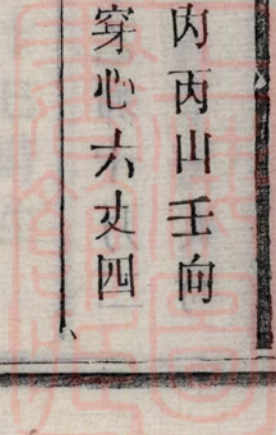 内丙山壬向
穿心六丈四